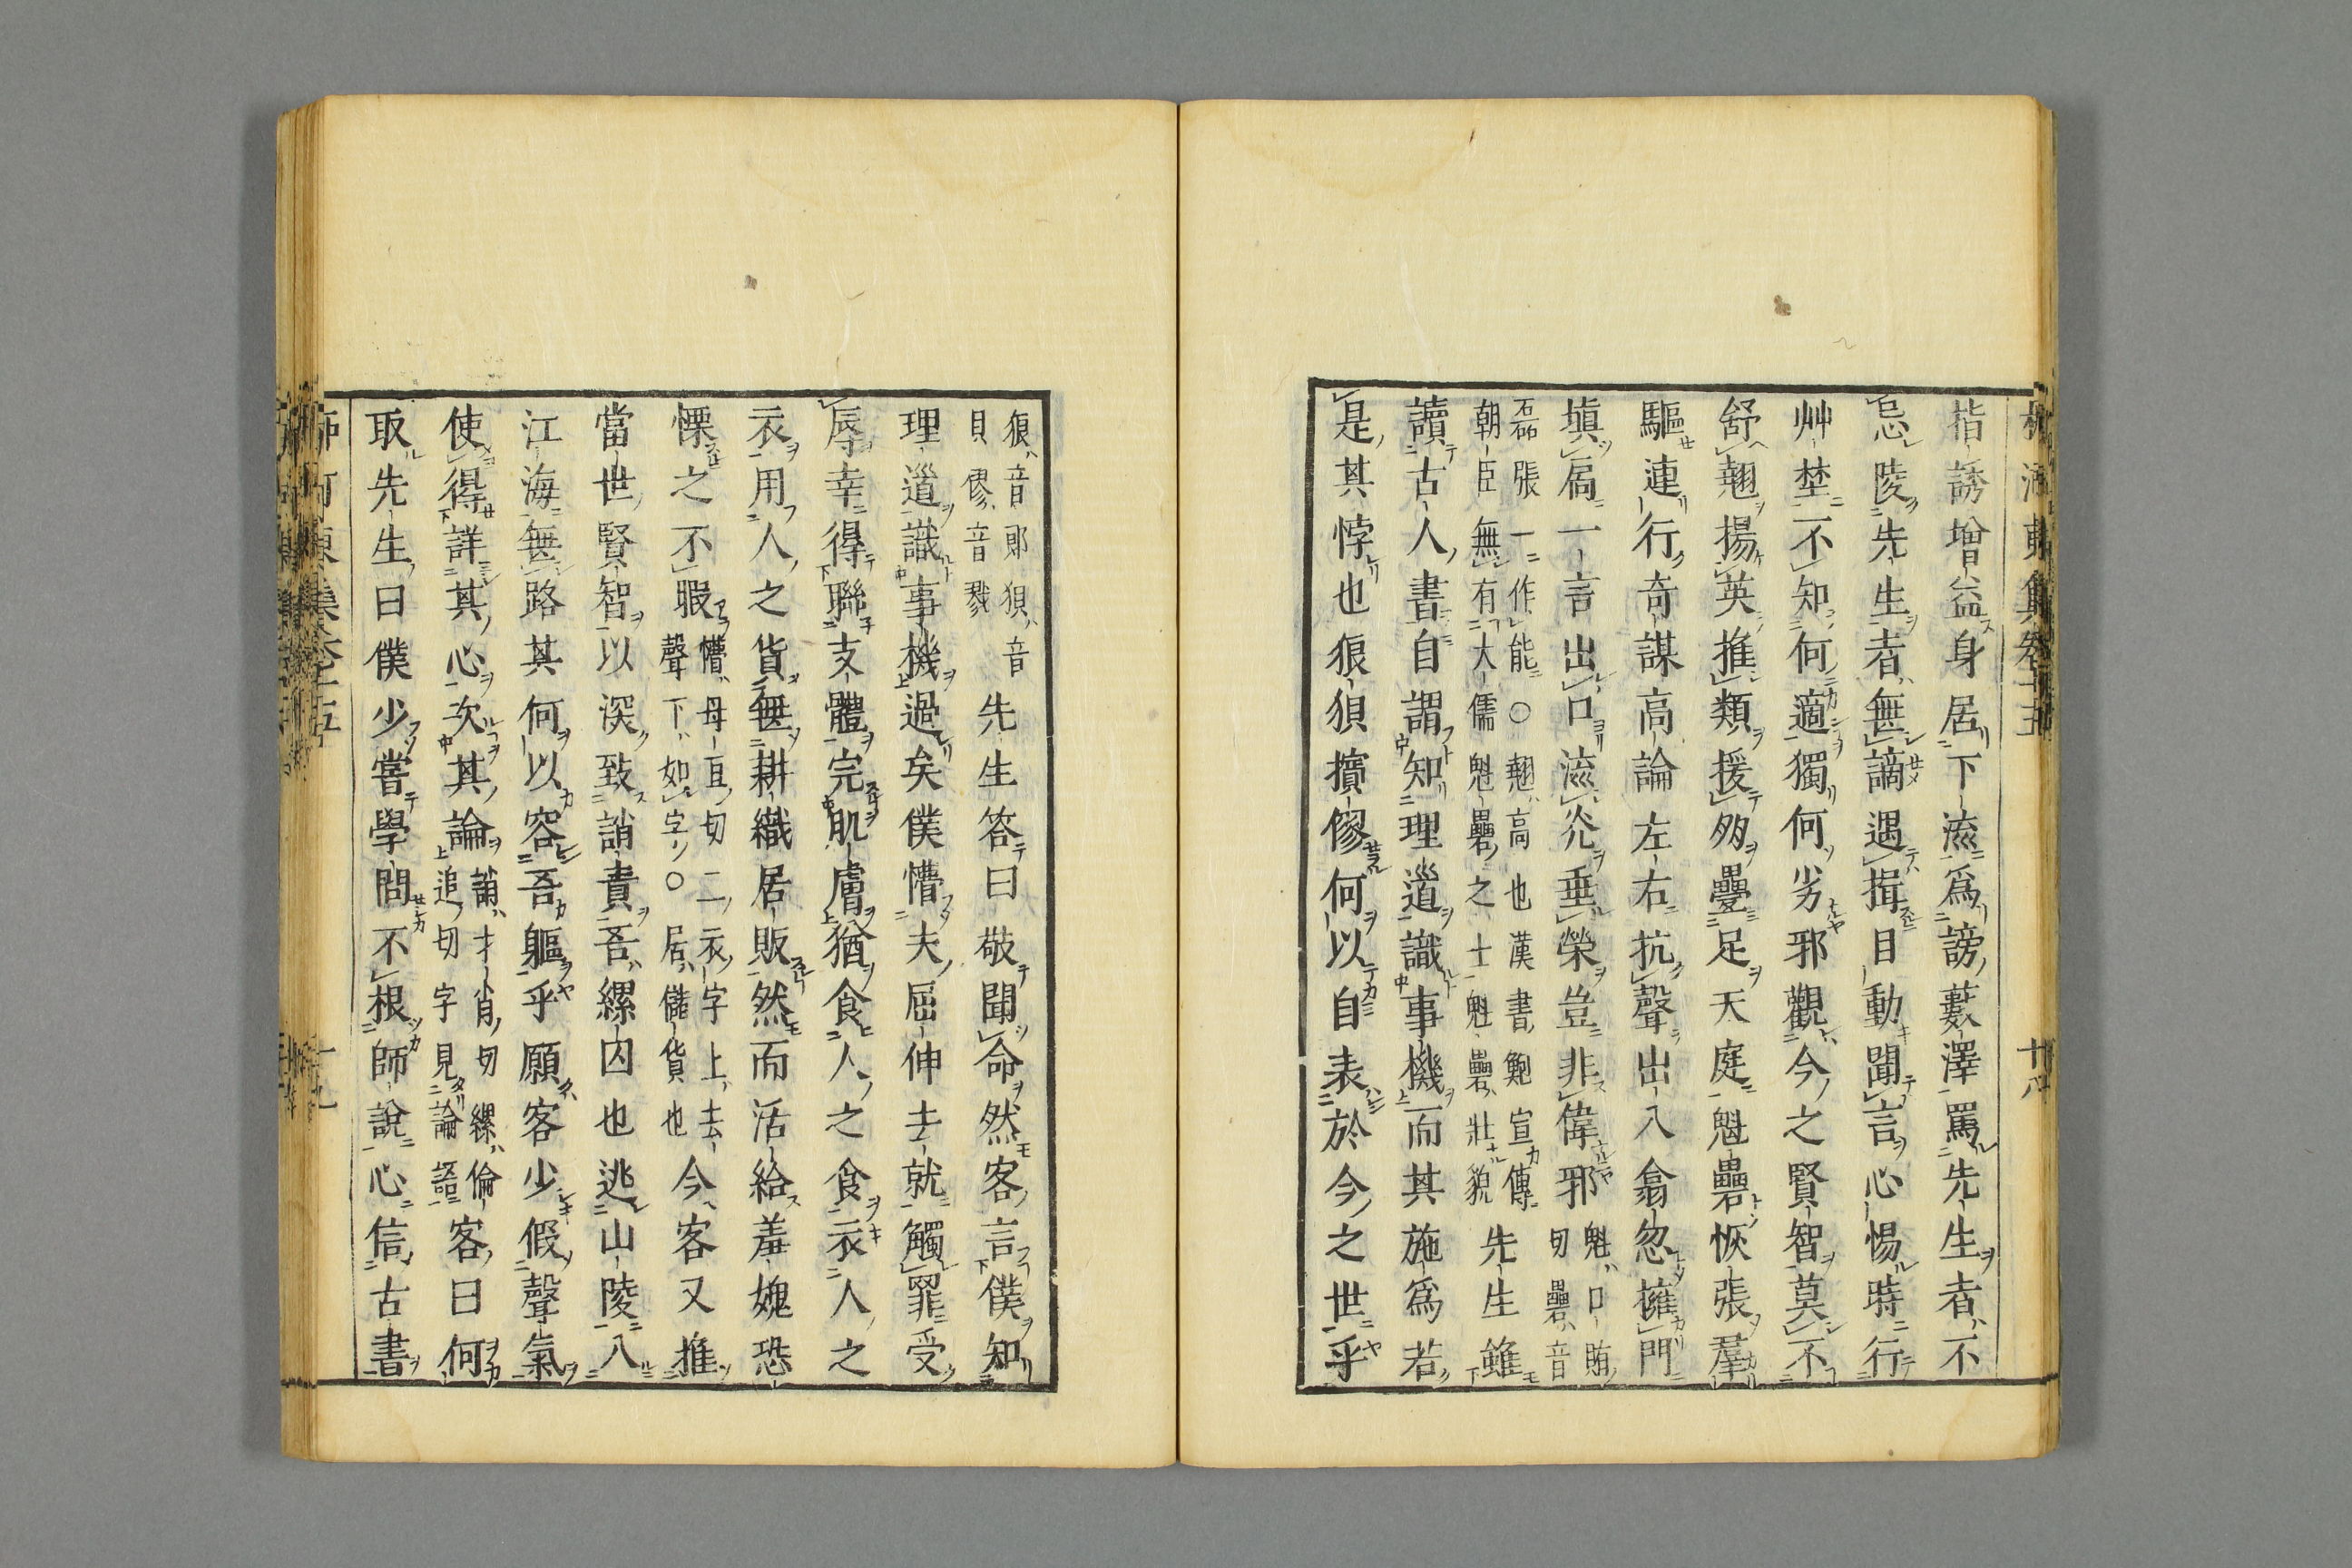 河東集卷十五 十八
指誘增益身居下流爲謗藪澤罵先生者不
忌陵先生者無謫遇揖目動聞言心惕時行
艸埜不知何適獨何劣邪觀今之賢智莫不
舒翹揚英推類援夠疊足天庭魁礨恢張羣
驅連行奇謀高論左右抗聲出入翕忽擁門
塡扃一言出口流灮垂榮豈非偉邪魁口賄切礨音
磊張一作能○翹高也漢書鮑宣傳朝臣無有大儒魁礨之士魁礨壯貌先生雖
讀古人書自謂知理道識事機而其施爲若
是其悖也狼狽擯僇何以自表於今之世乎
狼音郎狽音貝僇音戮先生答曰敬聞命然客言僕知
理道識事機過矣僕懵夫屈伸去就觸罪受
辱幸得聯支體完肌膚猶食人之食衣人之
衣用人之貨無耕織居販然而活給羞媿恐
慄之不暇懵母亘切二衣字上去聲下如字○居儲貨也今客又推
當世賢智以深致誚責吾縲囚也逃山陵入
江海無路其何以容吾軀乎願客少假聲氣
使得詳其心次其論誚才肖切縲倫追切字見論語客曰何
取先生曰僕少嘗學問不根師說心信古書
河東集卷十五 十九